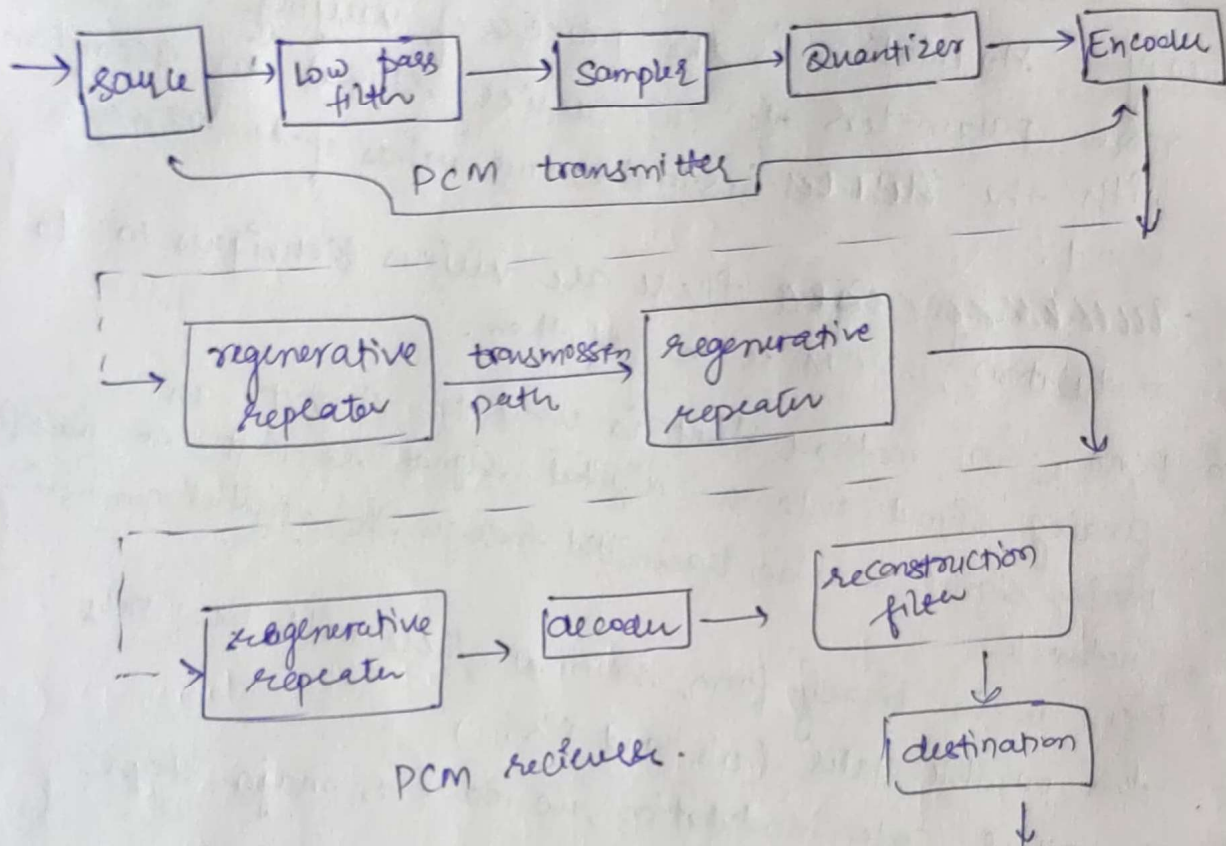 source
Low pass
filter
Sampler
Quantizer
Encoder
PCM transmitter
regenerative
repeater
transmossin
path
regenerative
repeater
regenerative
repeater
decoder
reconstruction
filter
destination
PCM reciever.